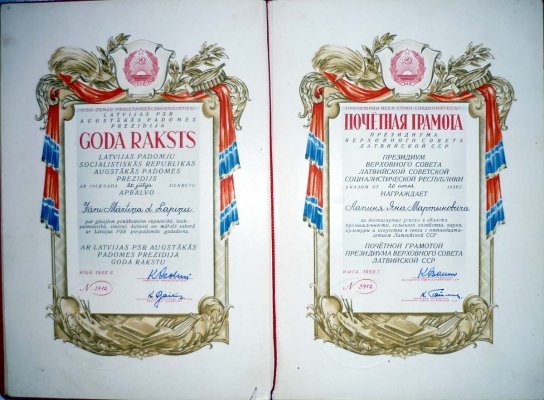 VISU ZEMJU PROLETĀRIEŠI, SAVIENOJIETIES!
LATVIJAS PSR
AUGSTĀKĀS PADOMES
PREZIDIJA
GODA RAKSTS
LATVIJAS PADOMJU
SOCIALISTISKĀS REPUBLIKAS
AUGSTĀKĀS PADOMES
PREZIDIJS
AR 1955. GADA 20. jūlija DEKRETU
APBALVO
Jāni Mārtiņa d. Lapiņu
par gūtajiem panākumiem rūpniecībā, lauk-
saimniecībā, zinātnē, kultūrā un mākslā sakarā
ar Latvijas PSR piecpadsmito gadadienu
AR LATVIJAS PSR AUGSTĀKĀS
PADOMES PREZIDIJA
GODA RAKSTU
RĪGĀ, 1955. G.
N 3412
ПРОЛЕТАРИИ ВСЕХ СТРАН, СОЕДИНЯЙТЕСЬ!
ПОЧЁТНАЯ ГРАМОТА
ПРЕЗИДИУМА
ВЕРХОВНОГО СОВЕТА
ЛАТВИЙСКОЙ ССР
ПРЕЗИДИУМ
ВЕРХОВНОГО СОВЕТА
ЛАТВИЙСКОЙ СОВЕТСКОЙ
СОЦИАЛИСТИЧЕСКОЙ РЕСПУБЛИКИ
УКАЗОМ ОТ 20 июля 1955 Г.
НАГРАЖДАЕТ
Лапиня Яна Мартыновича
за достигнутые успехи в области
промышленности, сельского хозяйства, науки,
культуры и искусства в связи с пятнадцати-
летием Латвийской ССР
ПОЧЁТНОЙ ГРАМОТОЙ
ПРЕЗИДИУМА ВЕРХОВНОГО СОВЕТА
ЛАТВИЙСКОЙ ССР
РИГА, 1955 Г.
N 3412